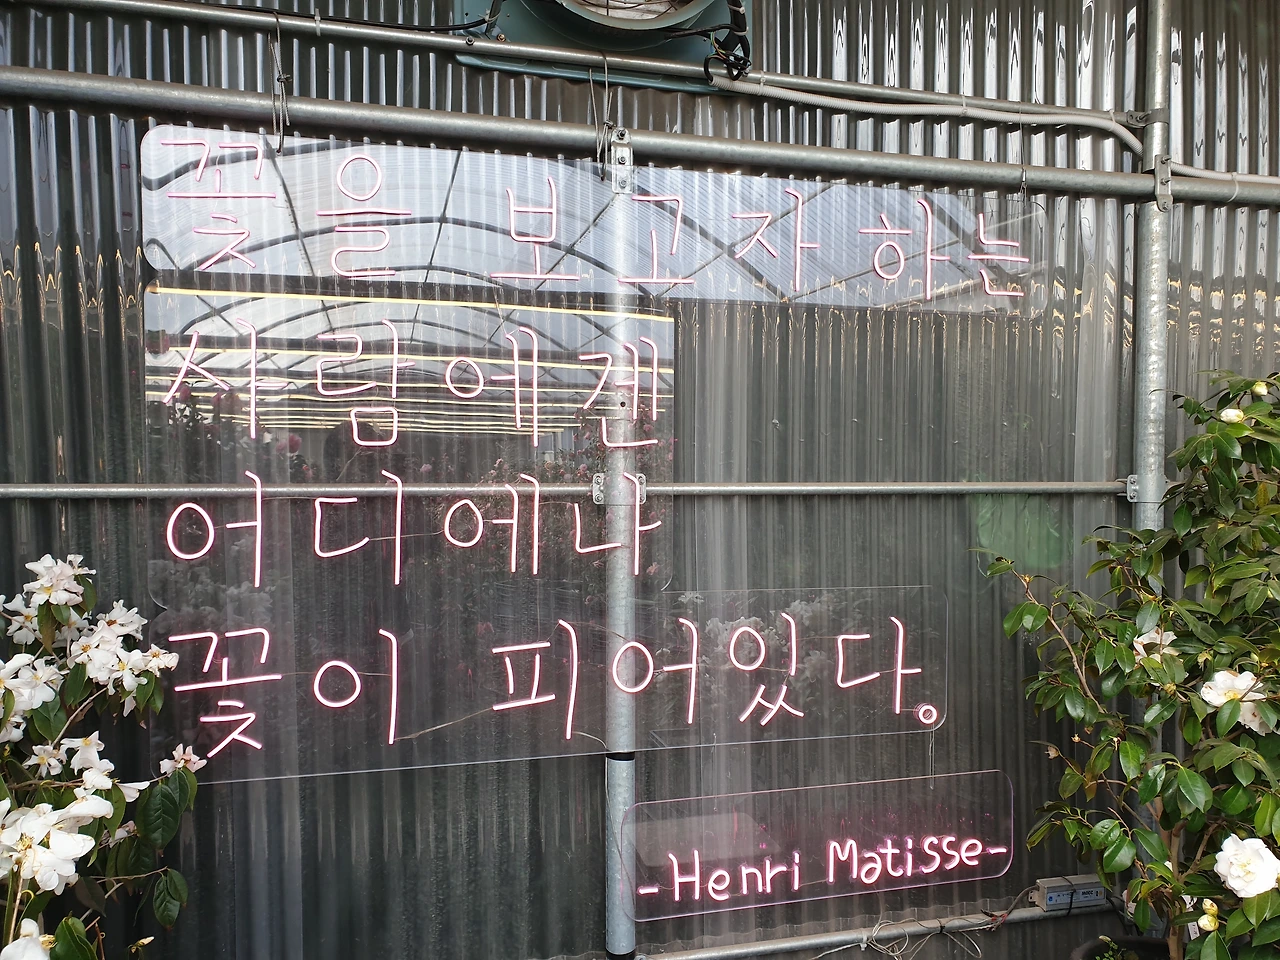 꽃을 보고자 하는
사람에겐
어디에나
꽃이 피어있다.
-Henri Matisse-